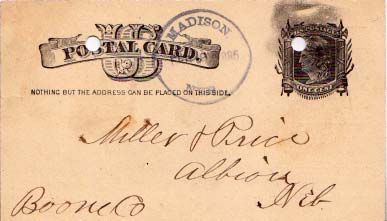 POSTAL CARD.
U.S. POSTAGE
ONE CENT
MADISON
NOTHING BUT THE ADDRESS CAN BE PLACED ON THIS SIDE.
Miller & Price
Albion
Neb
Boone Co